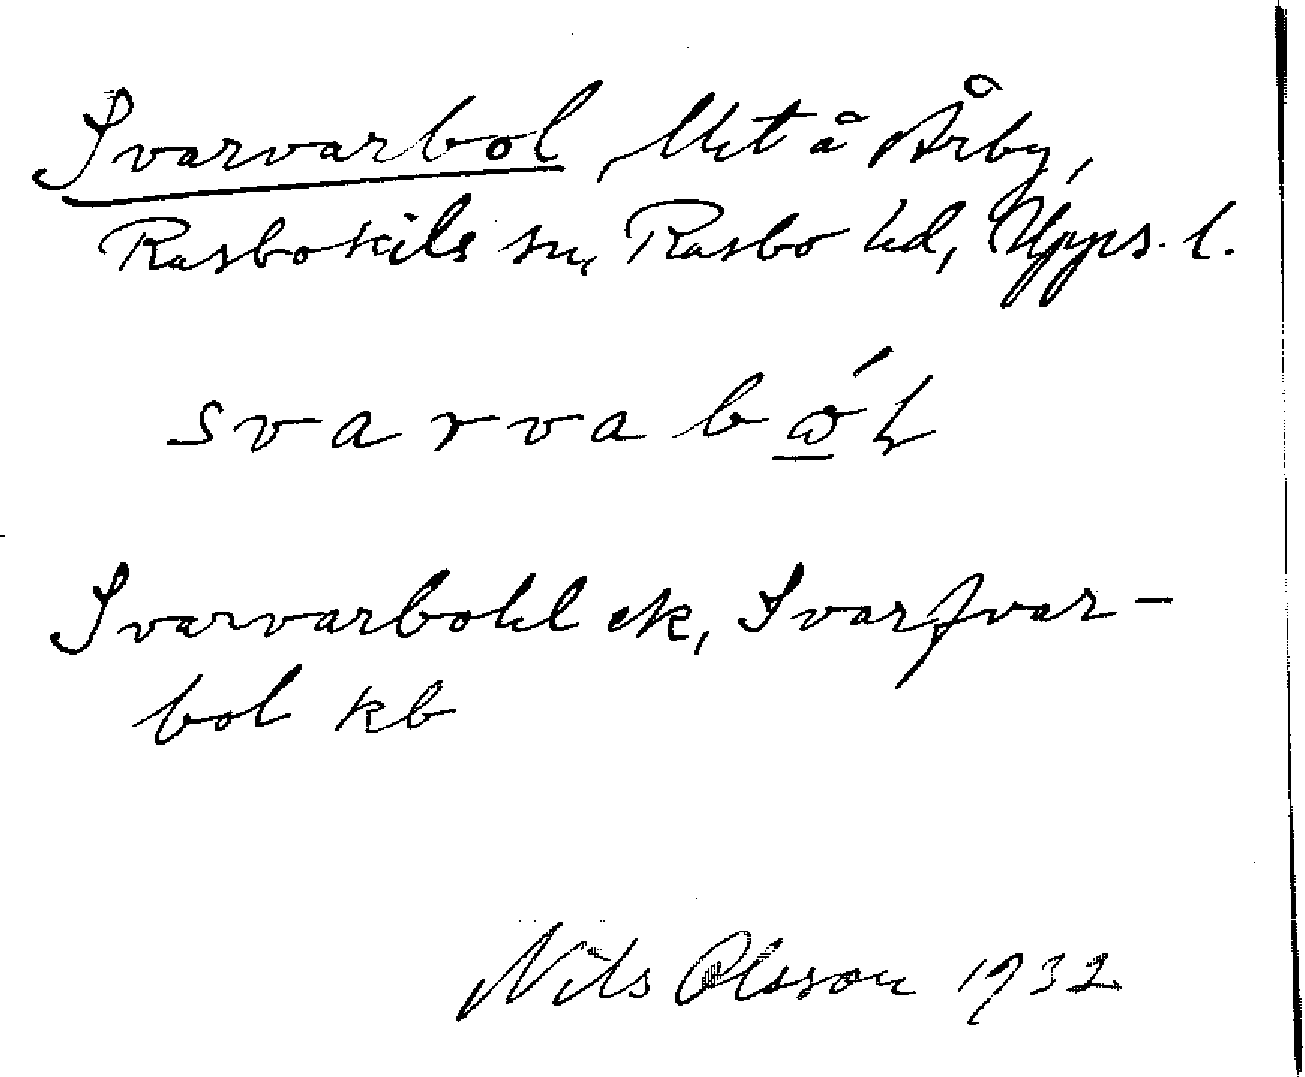 Svarvarbol, Utt å Årby,
Rasbokils sn, Rasbo hd, Upps. l.
svarvabǿł
Svarvarbohl ek, Svarfvar-
bol kb
Nils Olsson 1932